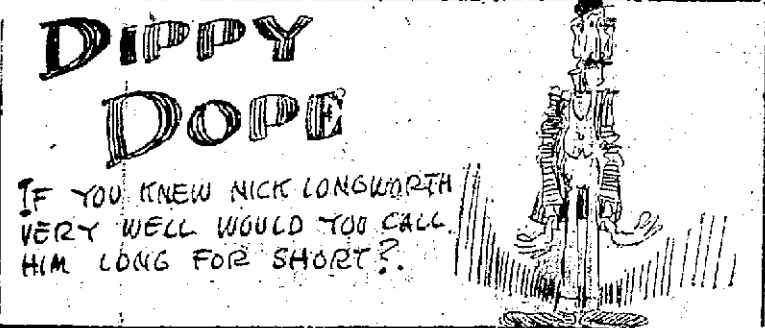 DIPPY
DOPE
IF YOU KNEW NICK LONGWORTH
VERY WELL WOULD YOU CALL
HIM LONG FOR SHORT?